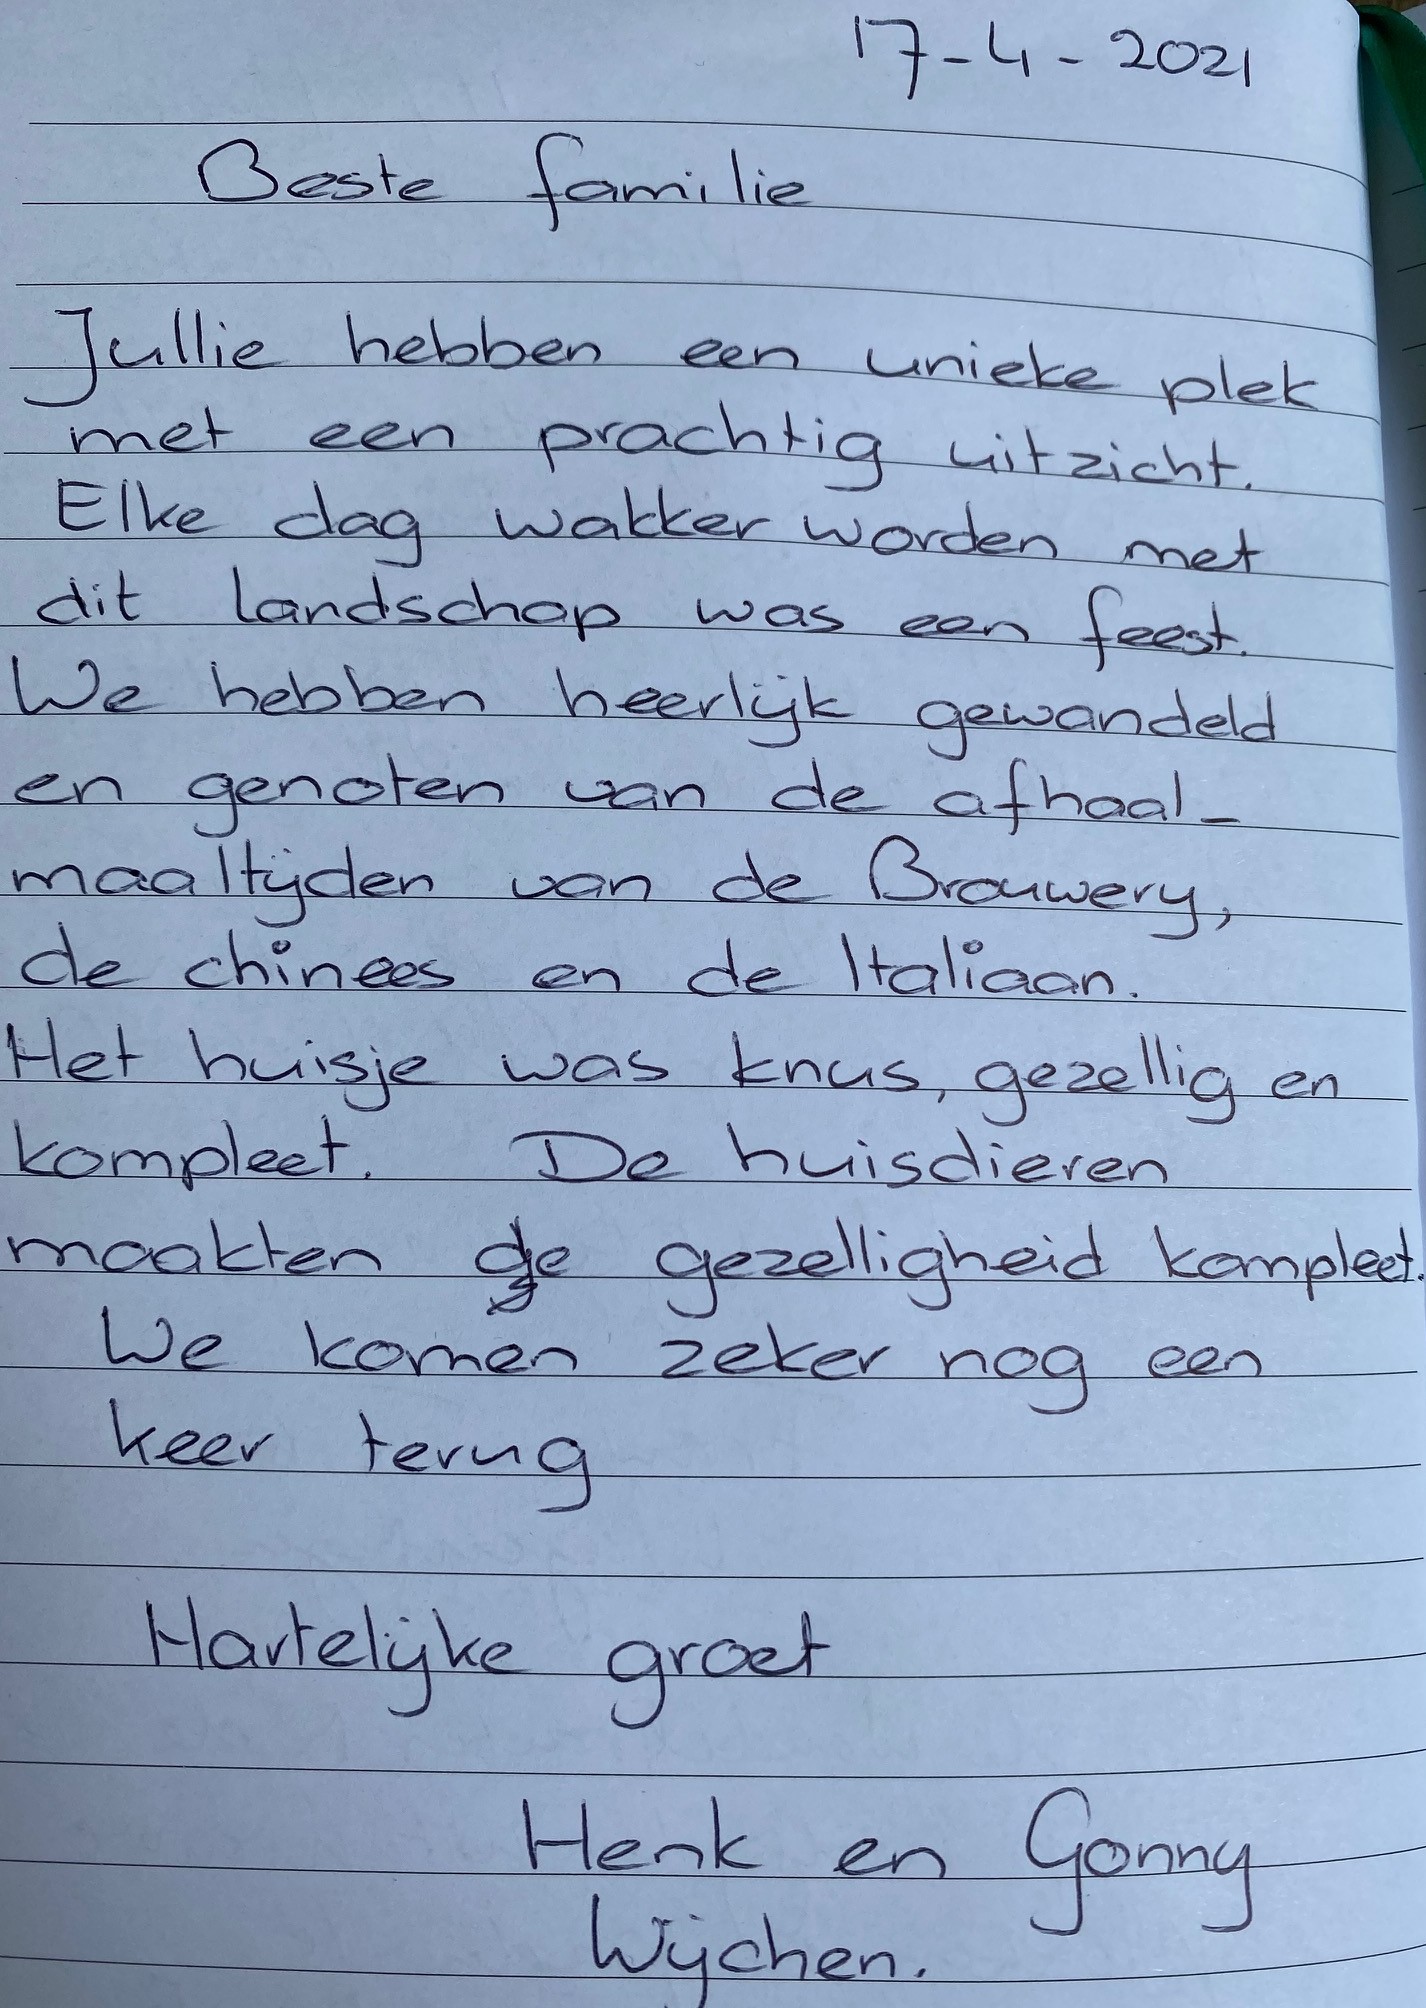 17-4-2021
Beste familie
Jullie hebben een unieke plek
met een prachtig uitzicht.
Elke dag wakker worden met
dit landschap was een feest.
We hebben heerlijk gewandeld
en genoten van de afhaal-
maaltijden van de Brouwery,
de chinees en de Italiaan.
Het huisje was knus, gezellig en
kompleet. De huisdieren
maakten de gezelligheid kompleet.
We komen zeker nog een
keer terug
Hartelijke groet
Henk en Gonny
Wijchen.